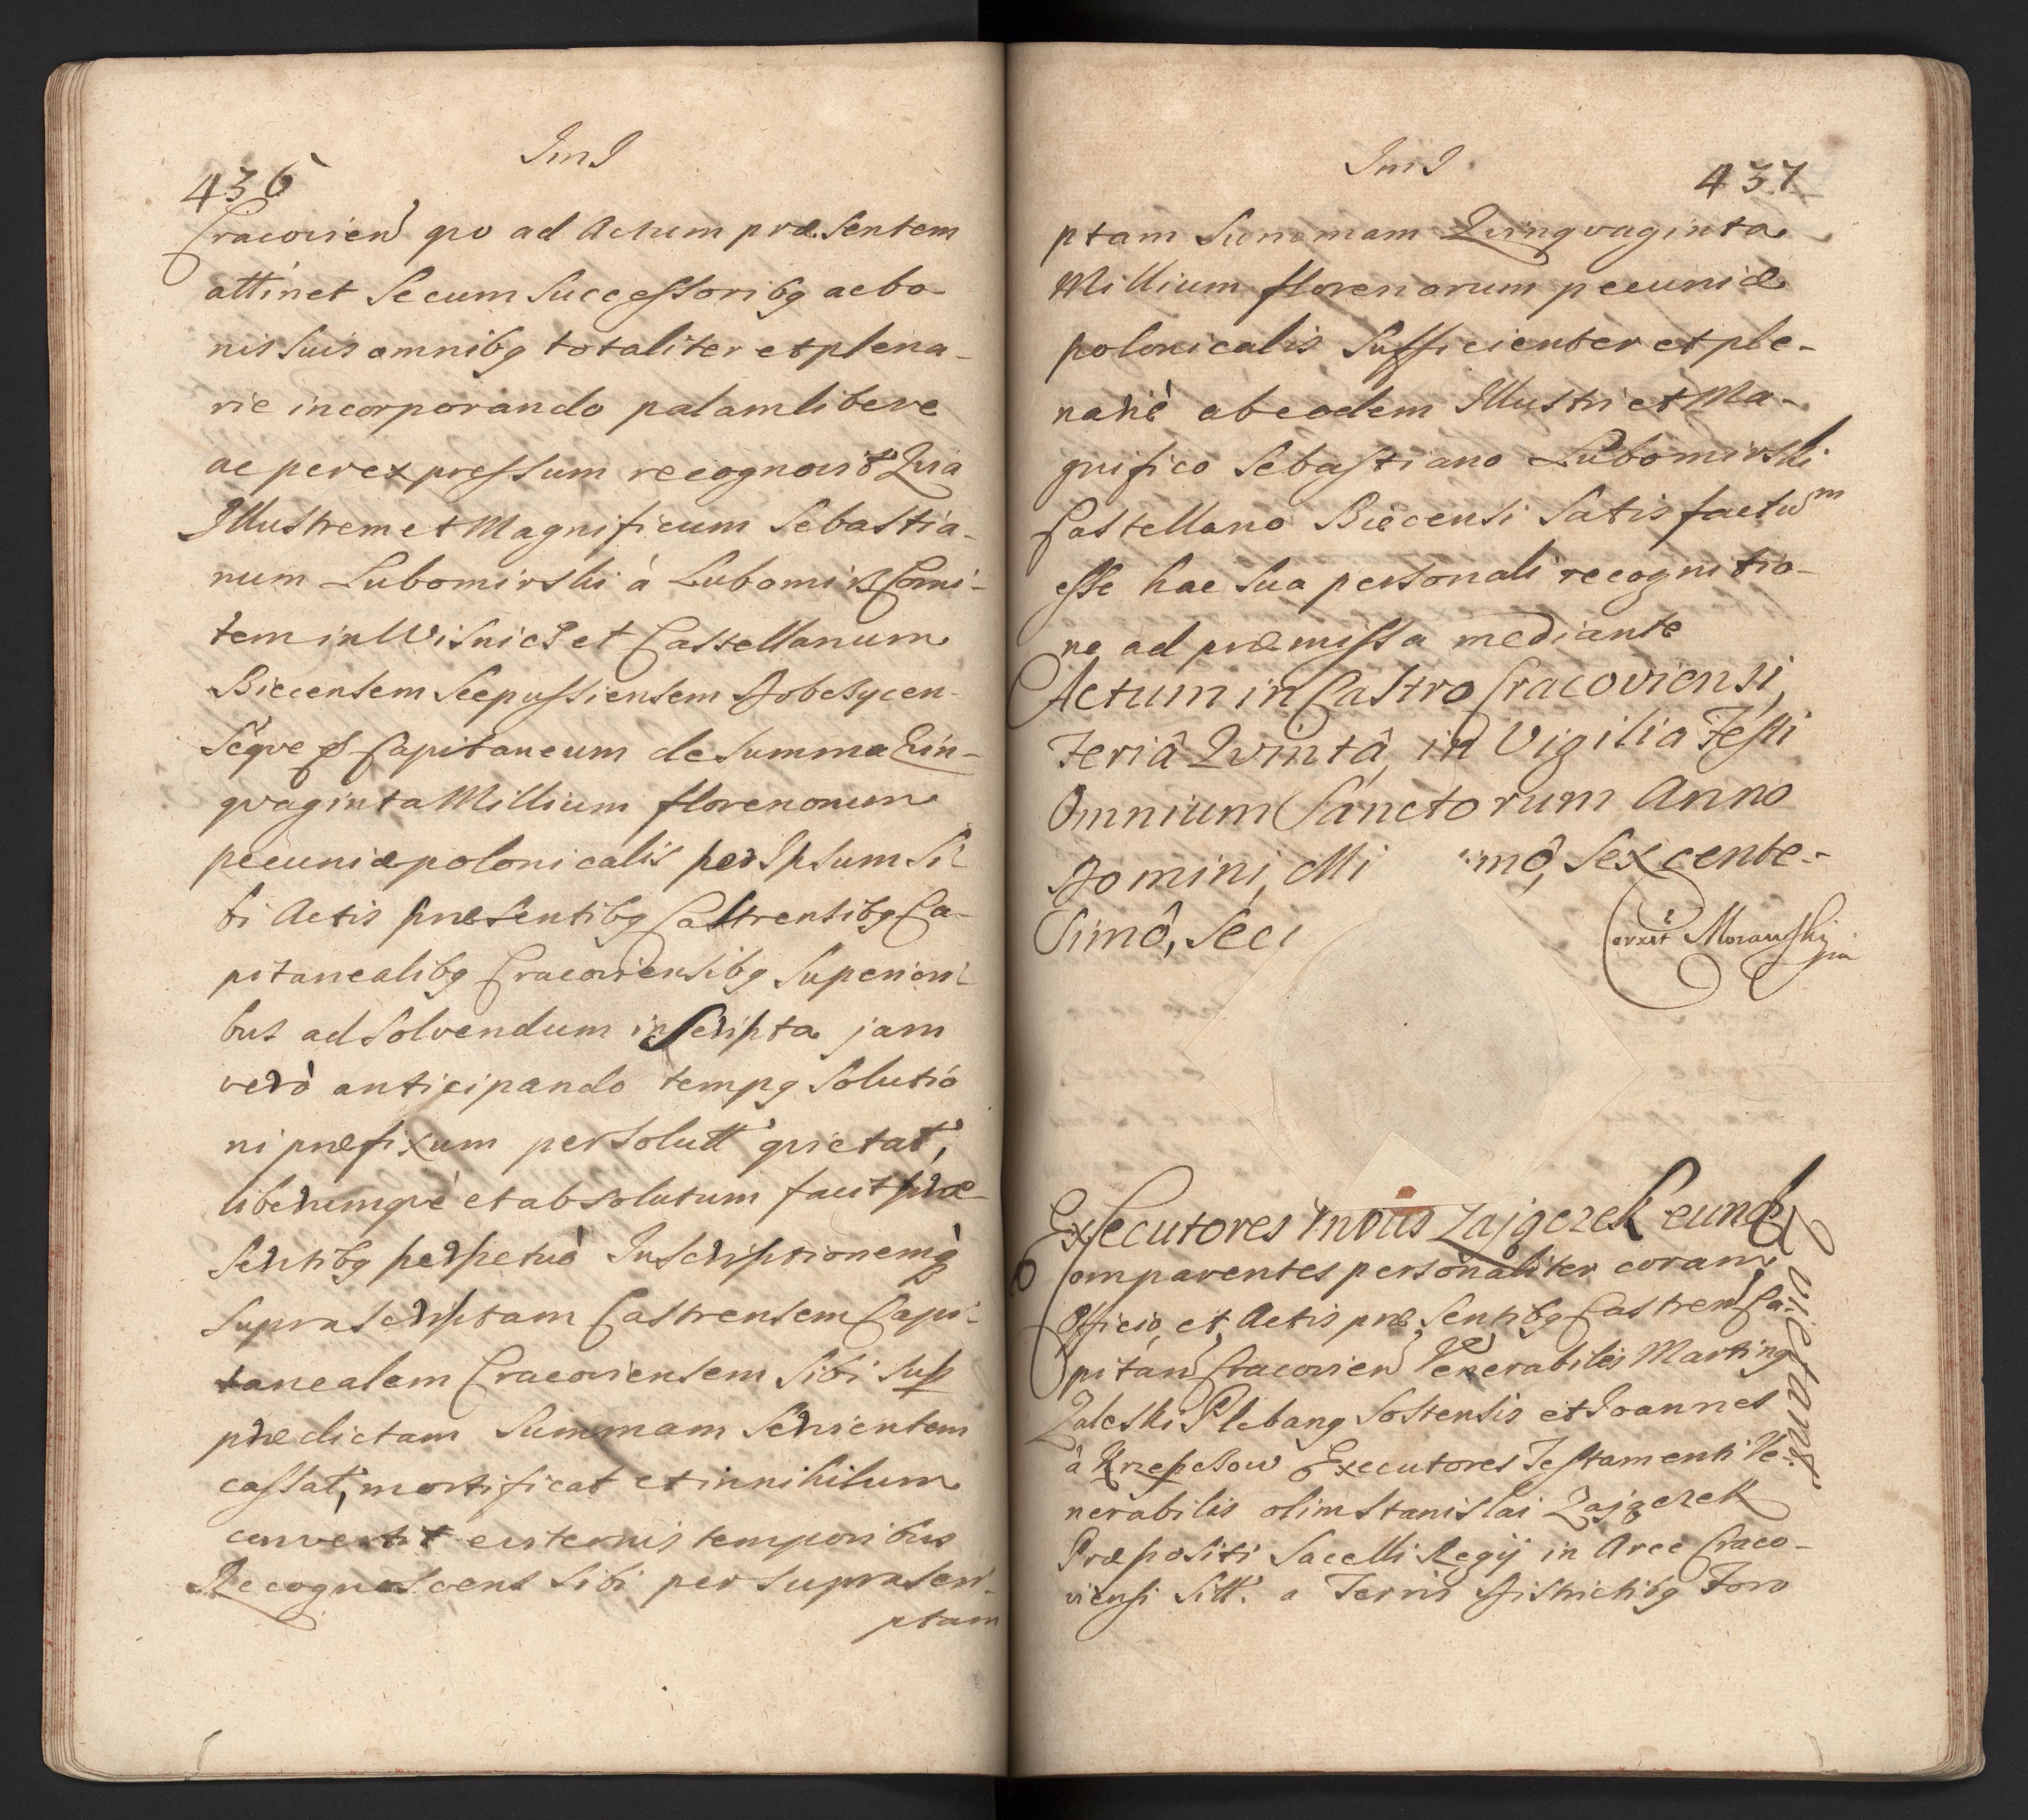 436
JmJ
Cracovien quo ad Actum præsentem
attinet secum Successoribq ac bo-
nis suis omnibq totaliter et plena-
rie incorporando palam libere
ac per expressum recognovit Quia
Illustrem et Magnificum Sebastia-
num Lubomirski à Lubomirz Comi-
tem in Wisnicz et Castellanum
Biecensem Scepussiensem Dobcsycen-
seqve Capitaneum de Summa Qvin-
qvaginta Millium florenorum
pecuniæ polonicalis per Ipsum Si-
bi Actis præsentibq Castrensibq Ca-
pitanealibq Cracoviensibq Superiori-
bus ad solvendum inscripta jam
verò anticipando tempq solutio
ni præfixum persolutt qvietat,
liberumqvè et absolutum facit præ-
sentibq perpetuò Inscriptionemq
suprascriptam Castrensem Capi-
tanealem Cracoviensem sibi sup
prædictam Summam servientem
cassat, mortificat et in nihilum
convertit æviternis temporibus
Recognoscens sibi per suprascri-
ptam
JmJ
437
ptam Summam Qvinqvaginta
Millium florenorum pecuniæ
polonicalis sufficienter et ple-
nariè ab eodem Illustri et Ma-
gnifico Sebastiano Lubomirski
Castellano Biecensi Satisfactum
esse hac sua personali recognitio-
ne ad præmissa mediante
Actum in Castro Cracoviensi,
Feriâ Qvintâ in Vigilia Festi
Omnium Sanctorum Anno
Domini, Mi mô, Sexcente-
simô, Sec
Correxit Morawski
Executores Zajączek eund
Qvietant
Comparentes personaliter coram
Officio, et, Actis præsentibq Castren Ca-
pitan Cracovien Venerabiles Martinq
Zaleski Plebanq Sostensis et Joannes
à Krzepczow Executores Testamenti Ve-
nerabilis olim Stanislai Zajączek
Præpositi Sacelli Regij in Arce Craco-
viensi Sitt. a Terris Districtibq Foro